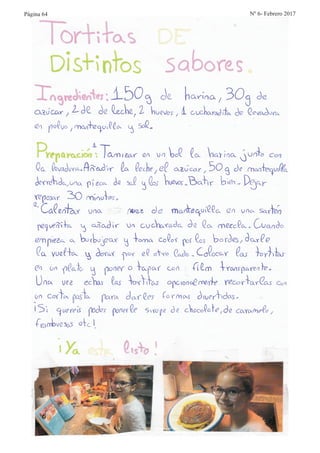 Página 64
Nº 6- Febrero 2017
Tortitas DE
Distintos sabores.
Ingredientes: 150g de harina, 30g de
azúcar, 2 dl de leche, 2 huevos, 1 cucharadita de levadura
en polvo, mantequilla y sal.
Preparación: 1º Tamizar en un bol la harina junto con
la levadura. Añadir la leche, el azúcar, 50g de mantequilla
derretida, una pizca de sal y los huevos. Batir bien. Dejar
reposar 30 minutos.
2º Calentar una nuez de mantequilla en una sartén
pequeñita y añadir un cucharada de la mezcla. Cuando
empieza a burbujear y toma color por los bordes, darle
la vuelta y dorar por el otro lado. Colocar las tortitas
en un plato y poner o tapar con film transparente.
Una vez echas las tortitas opcionalmente recortarlas con
un corta pasta para darles formas divertidas.
¡Si queréis podéis ponerle sirope de chocolate, de caramelo,
frambuesa etc!
¡Ya esta listo!